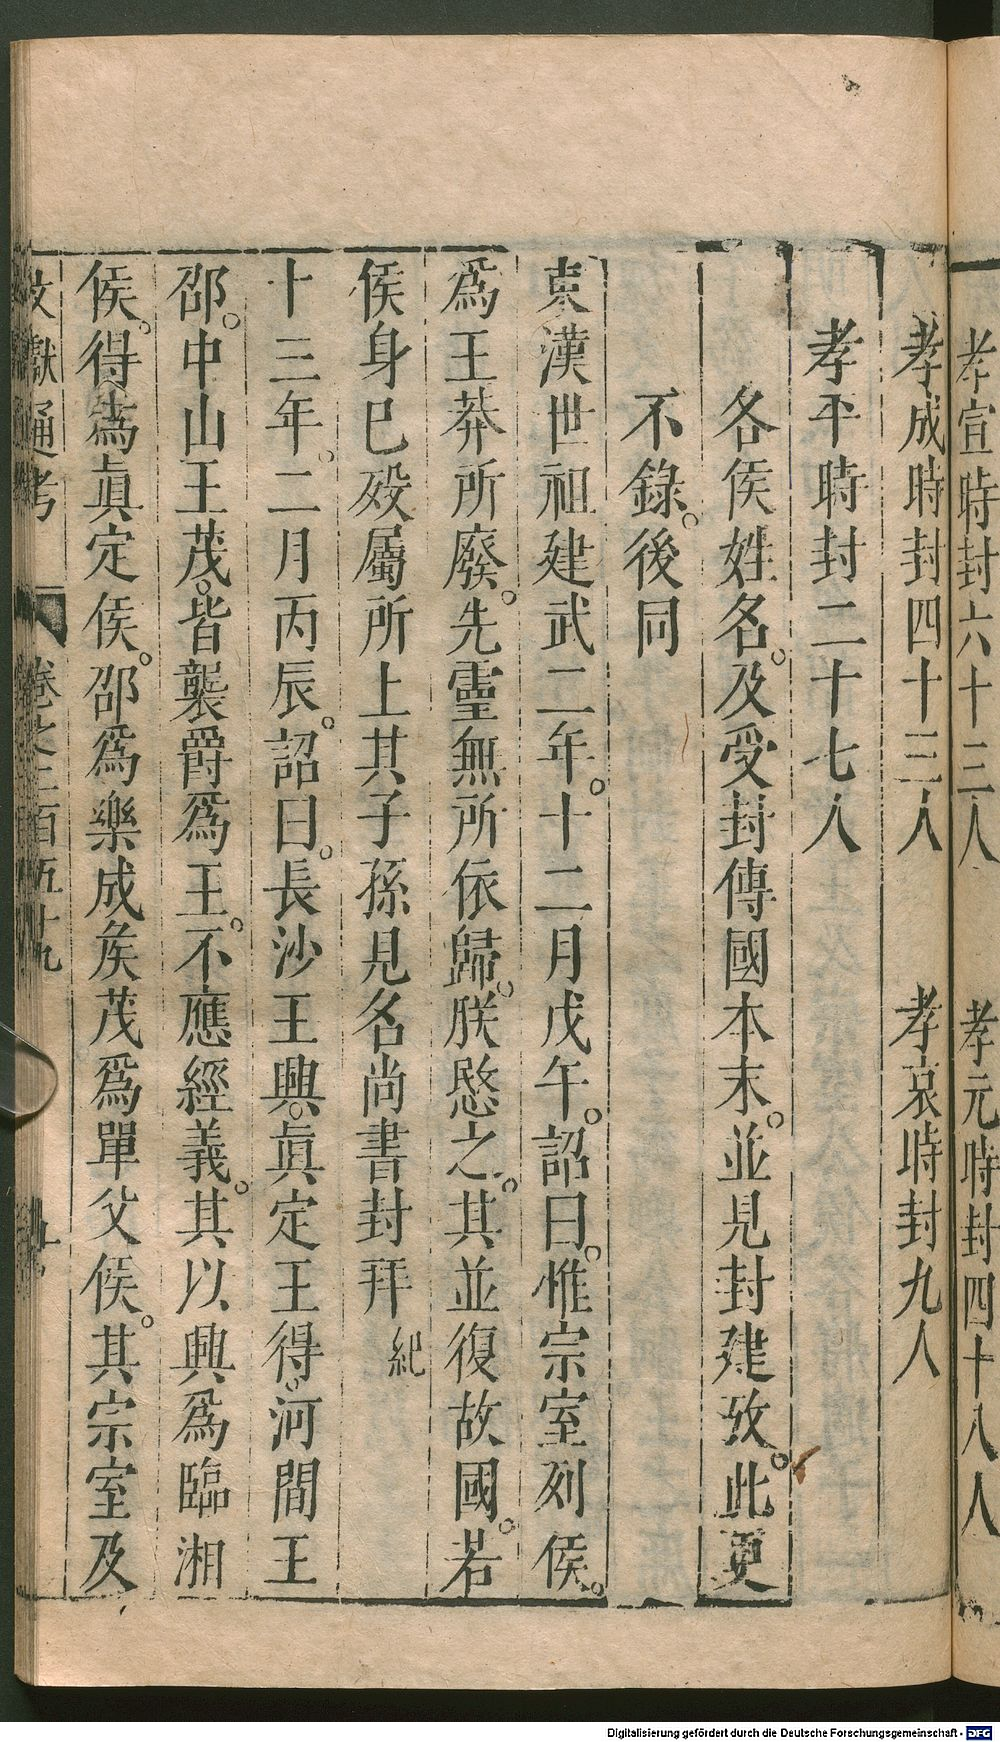 孝宣時封六十三人　孝元時封四十八人
孝成時封四十三人　孝哀時封九人
孝平時封二十七人
各侯姓名。及受封傳國本末。並見封建攷。此更
不錄。後同
東漢世祖建武二年。十二月戊午。詔曰。惟宗室列侯。
爲王莽所廢。先靈無所依歸。朕愍之。其並復故國。若
侯身已歿屬所上其子孫見名尚書封拜 紀
十三年。二月丙辰。詔曰。長沙王興。眞定王得。河間王
邵。中山王茂。皆襲爵爲王。不應經義。其以興爲臨湘
侯。得爲眞定侯。邵爲樂成侯茂爲單父侯。其宗室及
文獻通考　卷之二百五十九
Digitalisierung gefördert durch die Deutsche Forschungsgemeinschaft - DFG